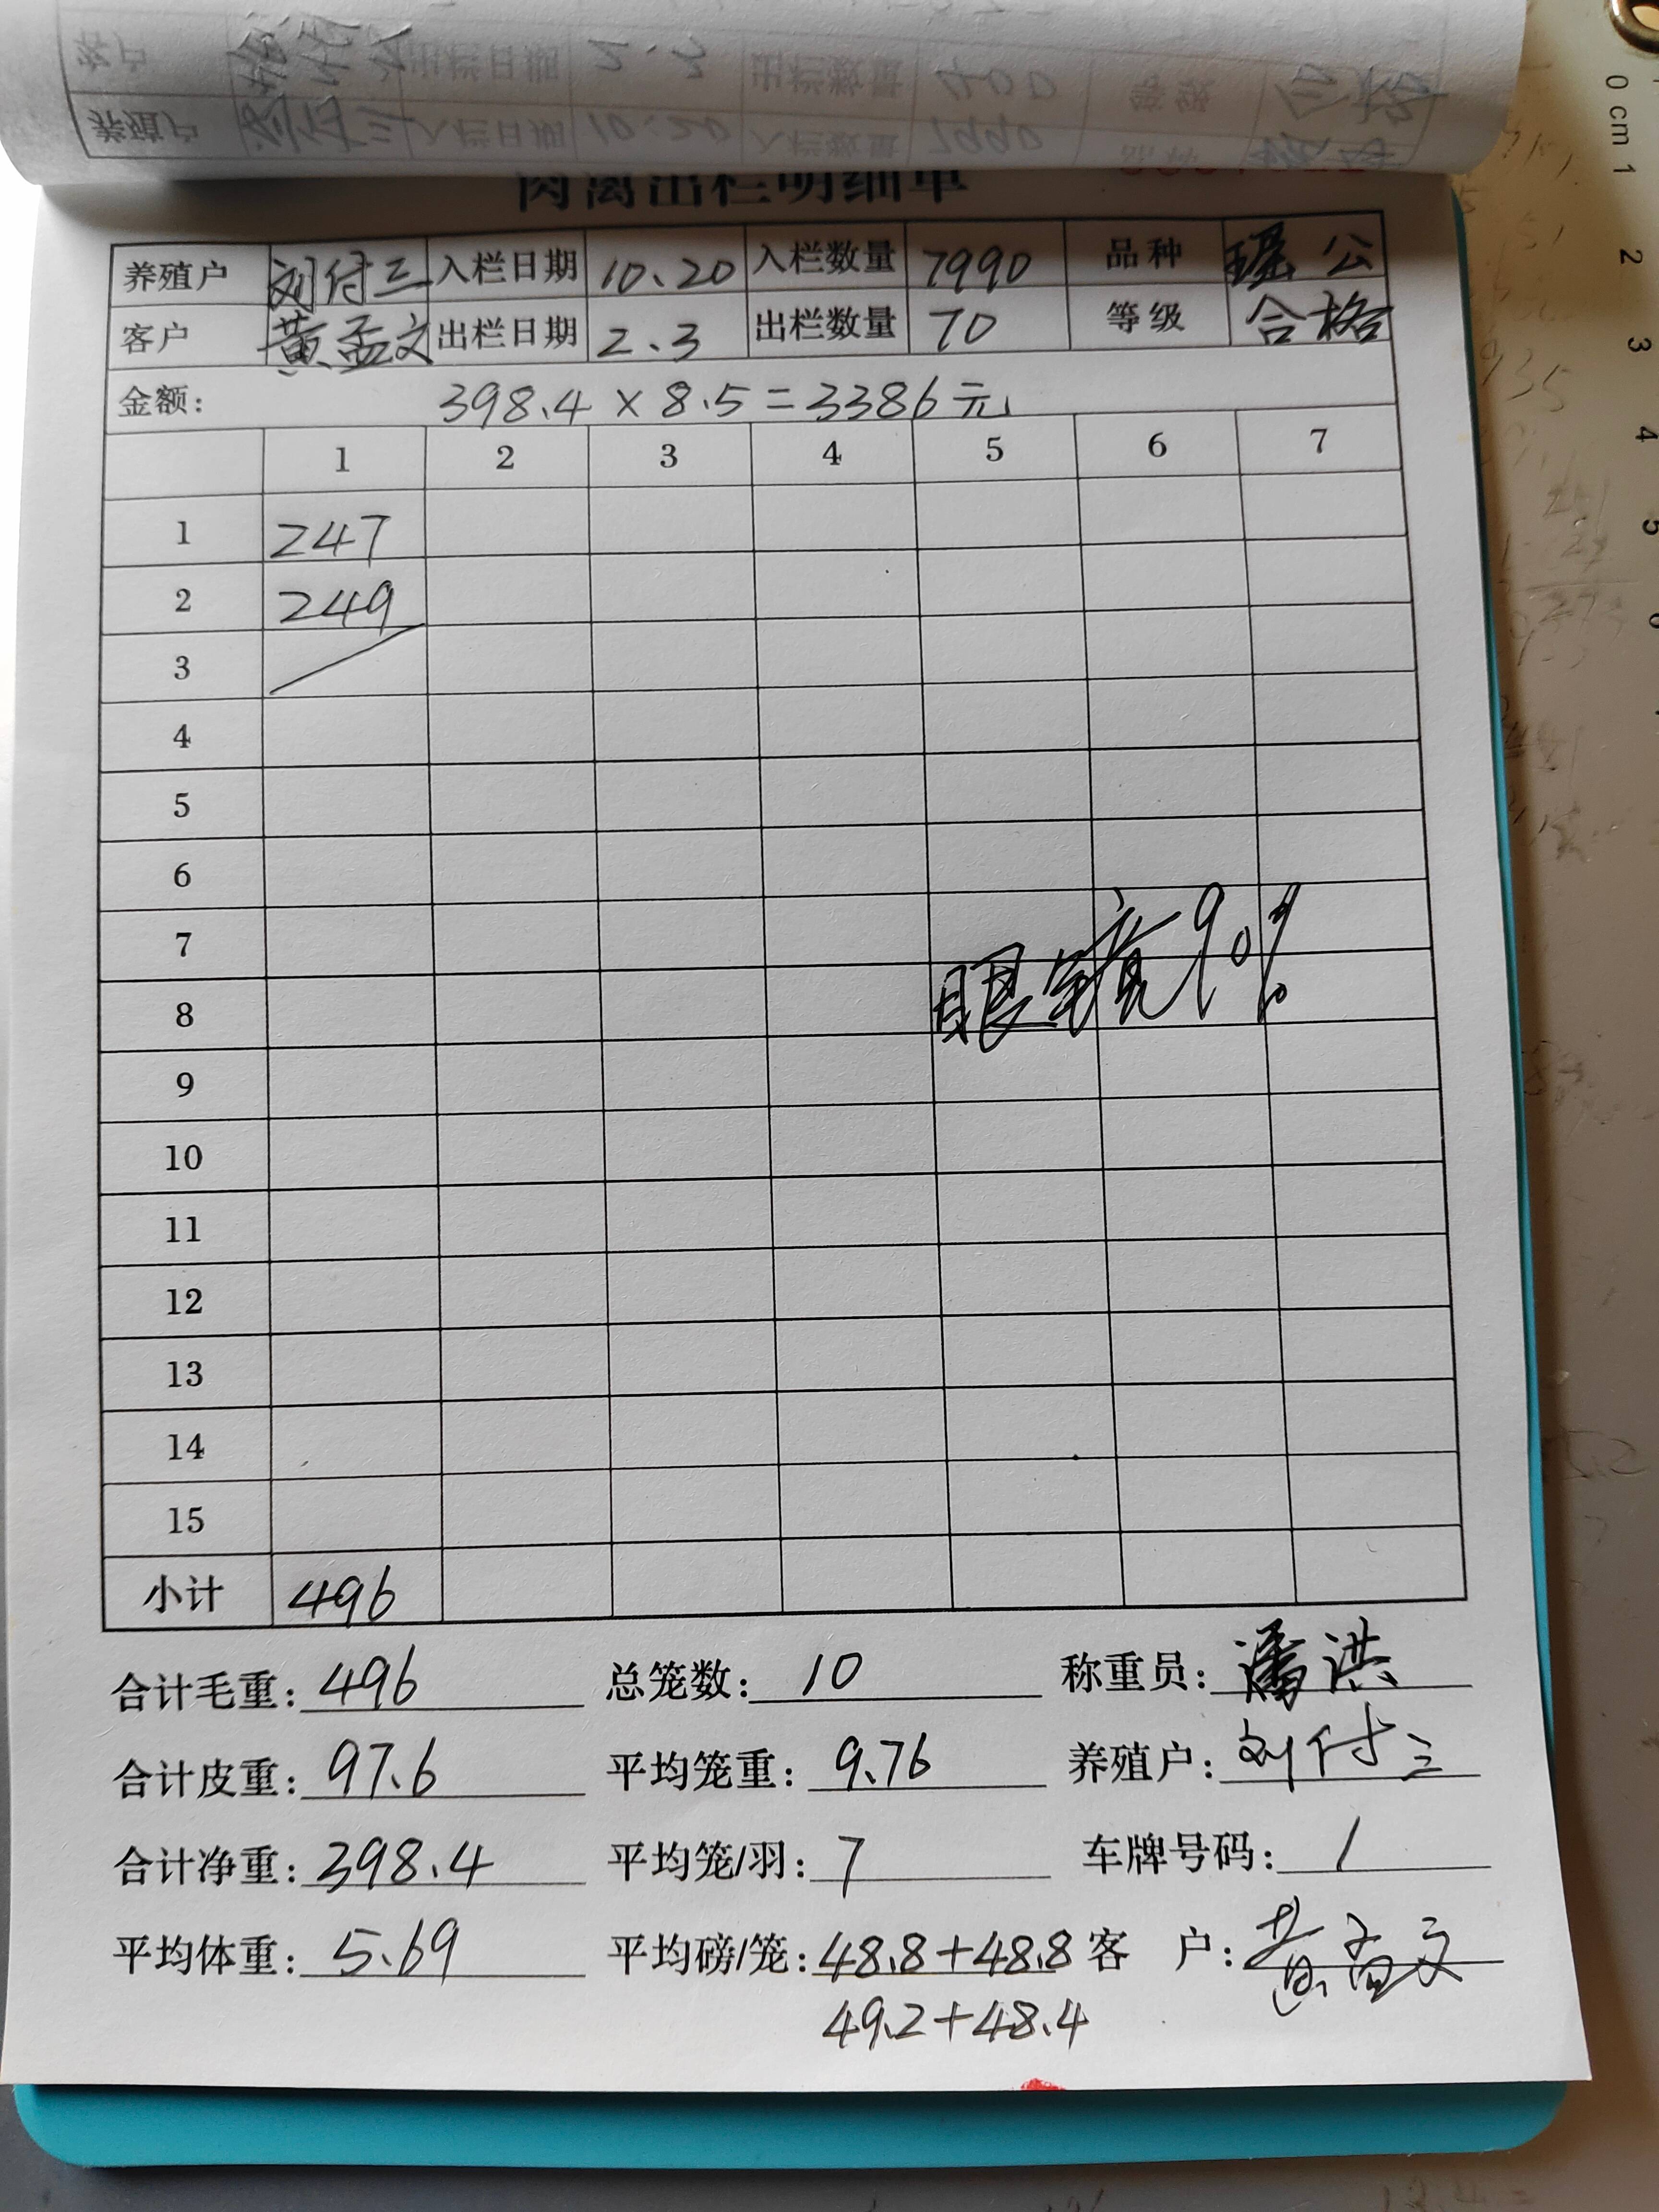 肉禽出栏明细单
养殖户 刘付三 入栏日期 10.20 入栏数量 7990 品种 瑶公
客户 黄孟文 出栏日期 2.3 出栏数量 70 等级 合格
金额: 398.4 × 8.5 = 3386元
1 2 3 4 5 6 7
1 247
2 249
3
4
5
6
7
眼睛亮90%
8
9
10
11
12
13
14
15
小计 496
合计毛重: 496 总笼数: 10 称重员: 潘洪
合计皮重: 97.6 平均笼重: 9.76 养殖户: 刘付三
合计净重: 398.4 平均笼/羽: 7 车牌号码: /
平均体重: 5.69 平均磅/笼: 48.8+48.8 客户: 黄孟文
49.2+48.4
0 cm 1 2 3 4 5 6